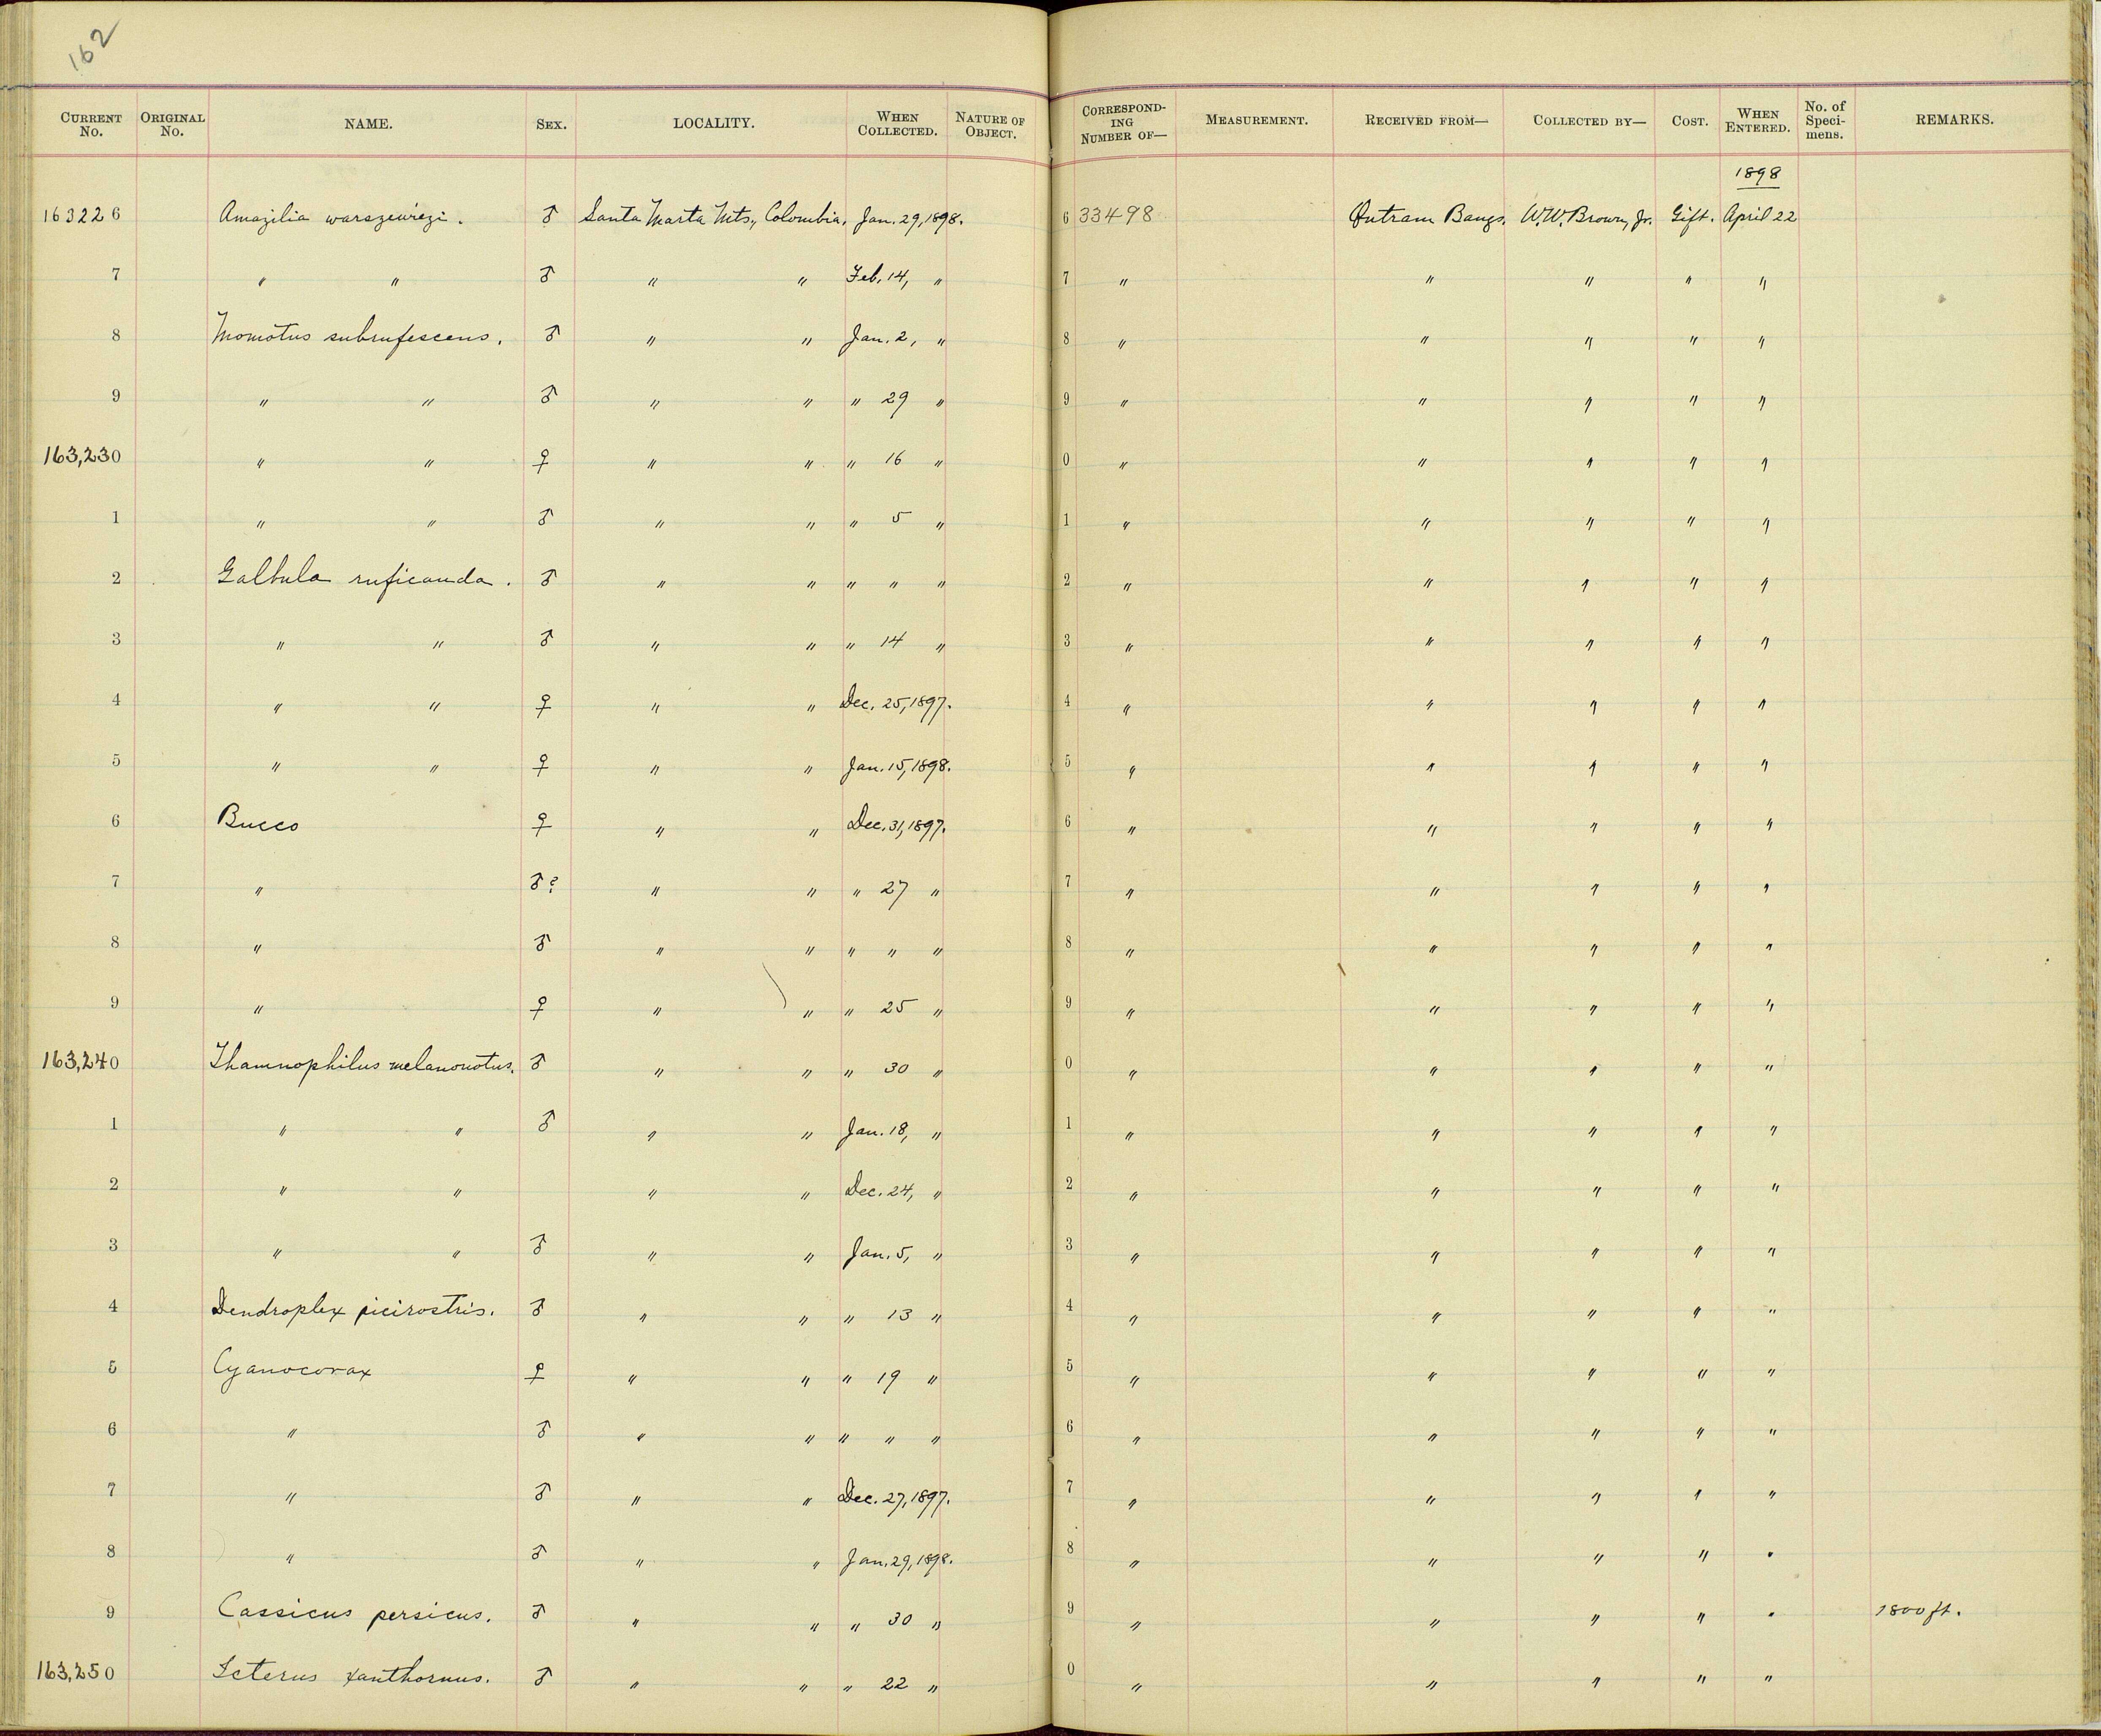 162
CURRENT No. ORIGINAL No. NAME. SEX. LOCALITY. WHEN COLLECTED. NATURE OF OBJECT. CORRESPOND-ING NUMBER OF— MEASUREMENT. RECEIVED FROM— COLLECTED BY— COST. WHEN ENTERED. No. of Speci-mens. REMARKS.
1898
163226 Amazilia warszewiezi. ♂ Santa Marta Mts., Colombia, Jan. 29, 1898. 6 33498 Outram Bangs. W.W. Brown, Jr. Gift. April 22
7 " " ♂ " " Feb. 14, " 7 " " " " "
8 Momotus subrufescens. ♂ " " Jan. 2, " 8 " " " " "
9 " " ♂ " " " 29 " 9 " " " " "
163,230 " " ♀ " " " 16 " 0 " " " " "
1 " " ♂ " " " 5 " 1 " " " " "
2 Galbula ruficauda. ♂ " " " " " 2 " " " " "
3 " " ♂ " " " 14 " 3 " " " " "
4 " " ♀ " " Dec. 25, 1897. 4 " " " " "
5 " " ♀ " " Jan. 15, 1898. 5 " " " " "
6 Bucco ♀ " " Dec. 31, 1897. 6 " " " " "
7 " ♂? " " " 27 " 7 " " " " "
8 " ♂ " " " " " 8 " " " " "
9 " ♀ " " " 25 " 9 " " " " "
163,240 Thamnophilus melanonotus. ♂ " " " 30 " 0 " " " " "
1 " " ♂ " " Jan. 18, " 1 " " " " "
2 " " " " Dec. 24, " 2 " " " " "
3 " " ♂ " " Jan. 5, " 3 " " " " "
4 Dendroplex picirostris. ♂ " " " 13 " 4 " " " " "
5 Cyanocorax ♀ " " " 19 " 5 " " " " "
6 " ♂ " " " " " 6 " " " " "
7 " ♂ " " Dec. 27, 1897. 7 " " " " "
8 " ♂ " " Jan. 29, 1898. 8 " " " " "
9 Cassicus persicus. ♂ " " " 30 " 9 " " " " " 1800 ft.
163,250 Icterus xanthornus. ♂ " " " 22 " 0 " " " " "